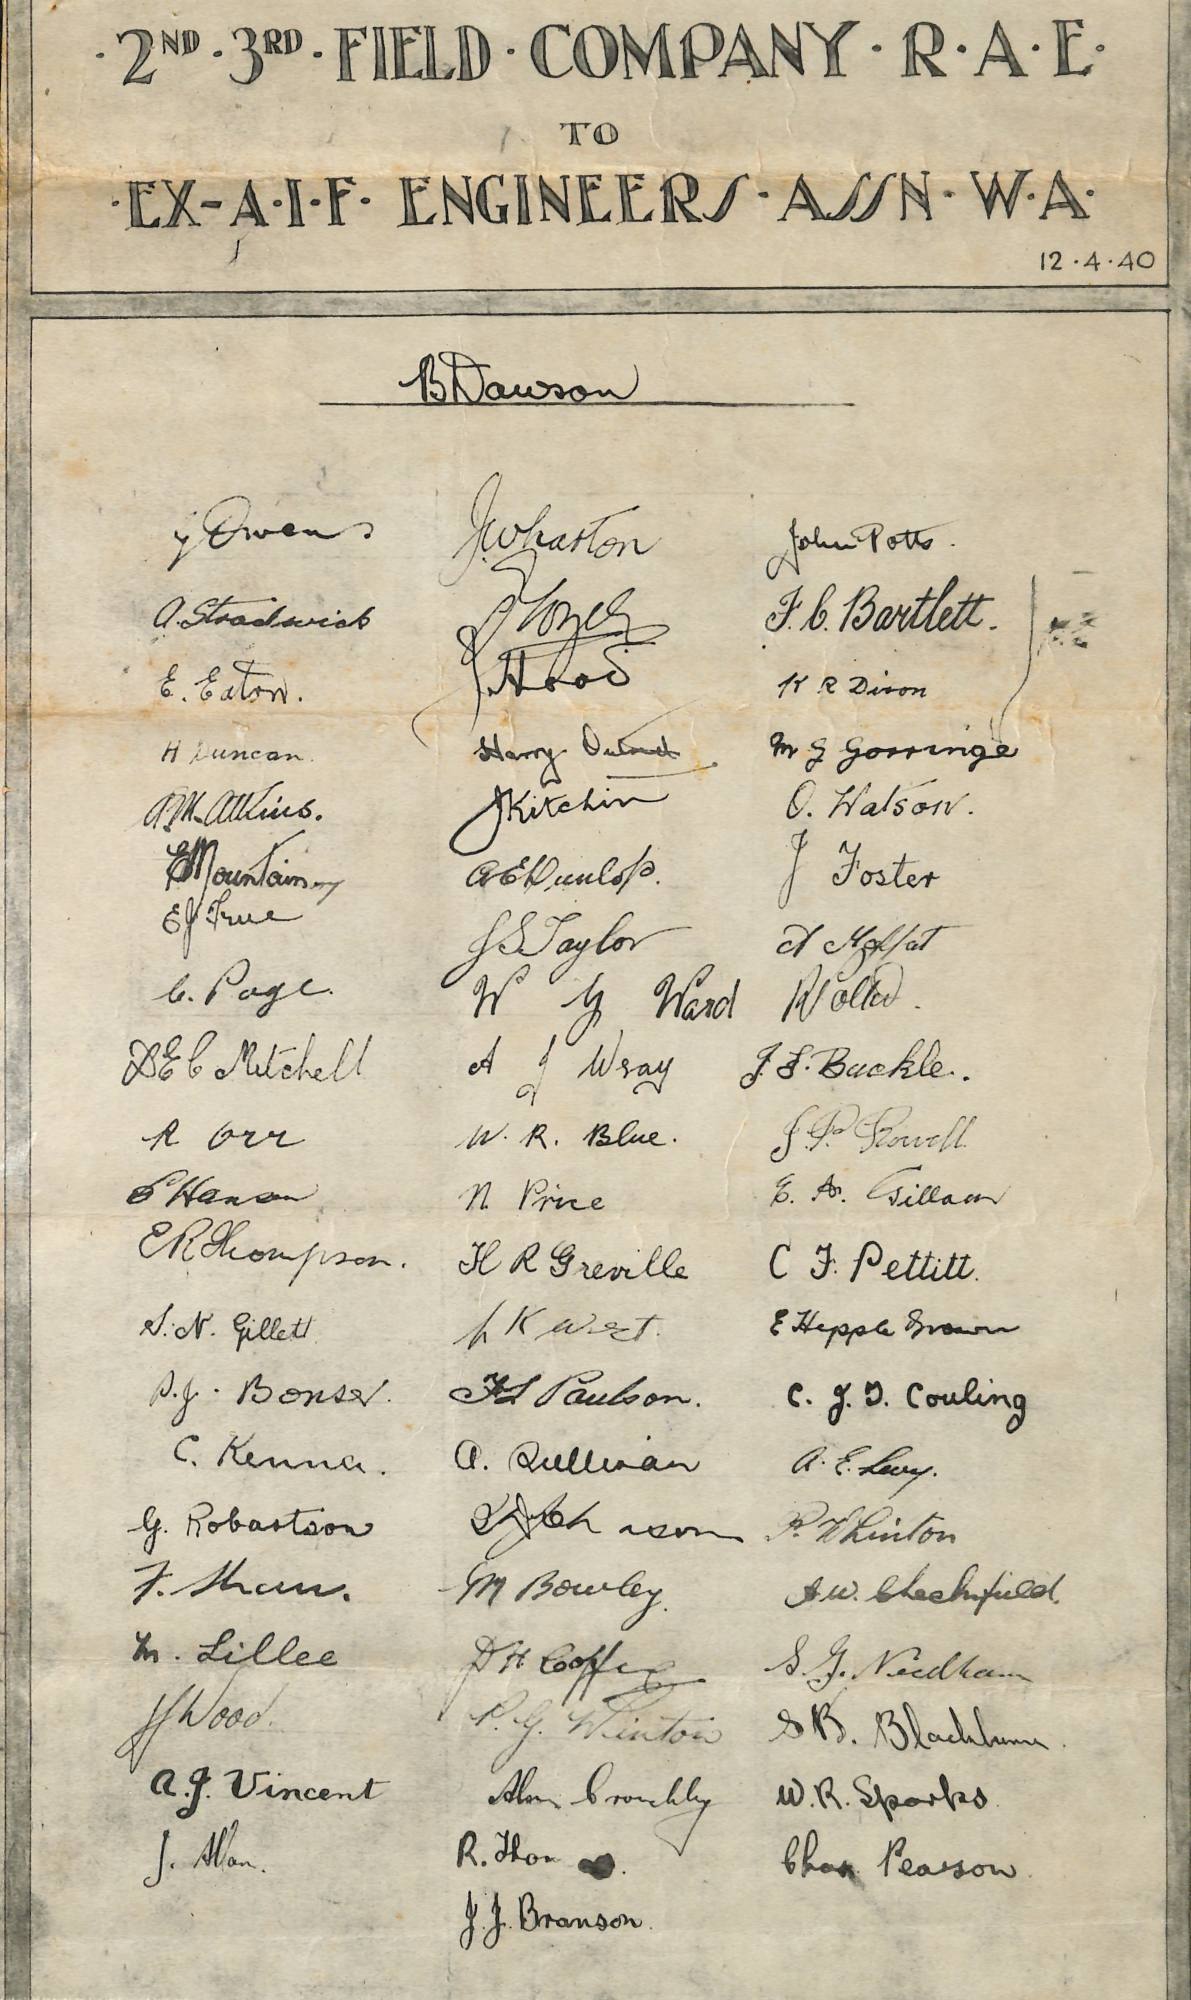 ·2ND·3RD·FIELD·COMPANY·R·A·E·
TO
·EX-A·I·F· ENGINEERS·ASSN·W·A·
12·4·40
B Dawson
J Owens
A. Stradwick
E. Eaton.
H Duncan.
A.M. Atkins.
E Mountain
EJ True
C. Page.
D E C Mitchell
R Orr
Hanson
E R Thompson.
S. N. Gillett
P.J. Bonser.
C. Kenna.
G. Robartson
F. Shaw.
M. Lillee
Wood.
A.J. Vincent
J. Allan.
J. Wharton
J. Hood
Harry
J Kitchin
A E Dunlop.
J S Taylor
W G Ward
A J Wray
W. R. Blue.
N. Price
H R Greville
K West.
Paulson.
A. Sullivan
M Bowley.
D H
P. G. Winton
Alan
R. Thom
J. J. Branson.
John Potts.
F. C. Bartlett.
K R Dixon
M G Gorringe
O. Watson.
J Foster
A Moffat
R
J. S. Buckle.
J. P.
E. A. Gillam
C F. Pettitt.
E Hepple Brown
C. J. T. Couling
A. E. Levy.
P. Whinton
A.W. Checkfield.
S. G. Needham
S B. Blackburn.
W. R. Sparks
Chas Pearson.